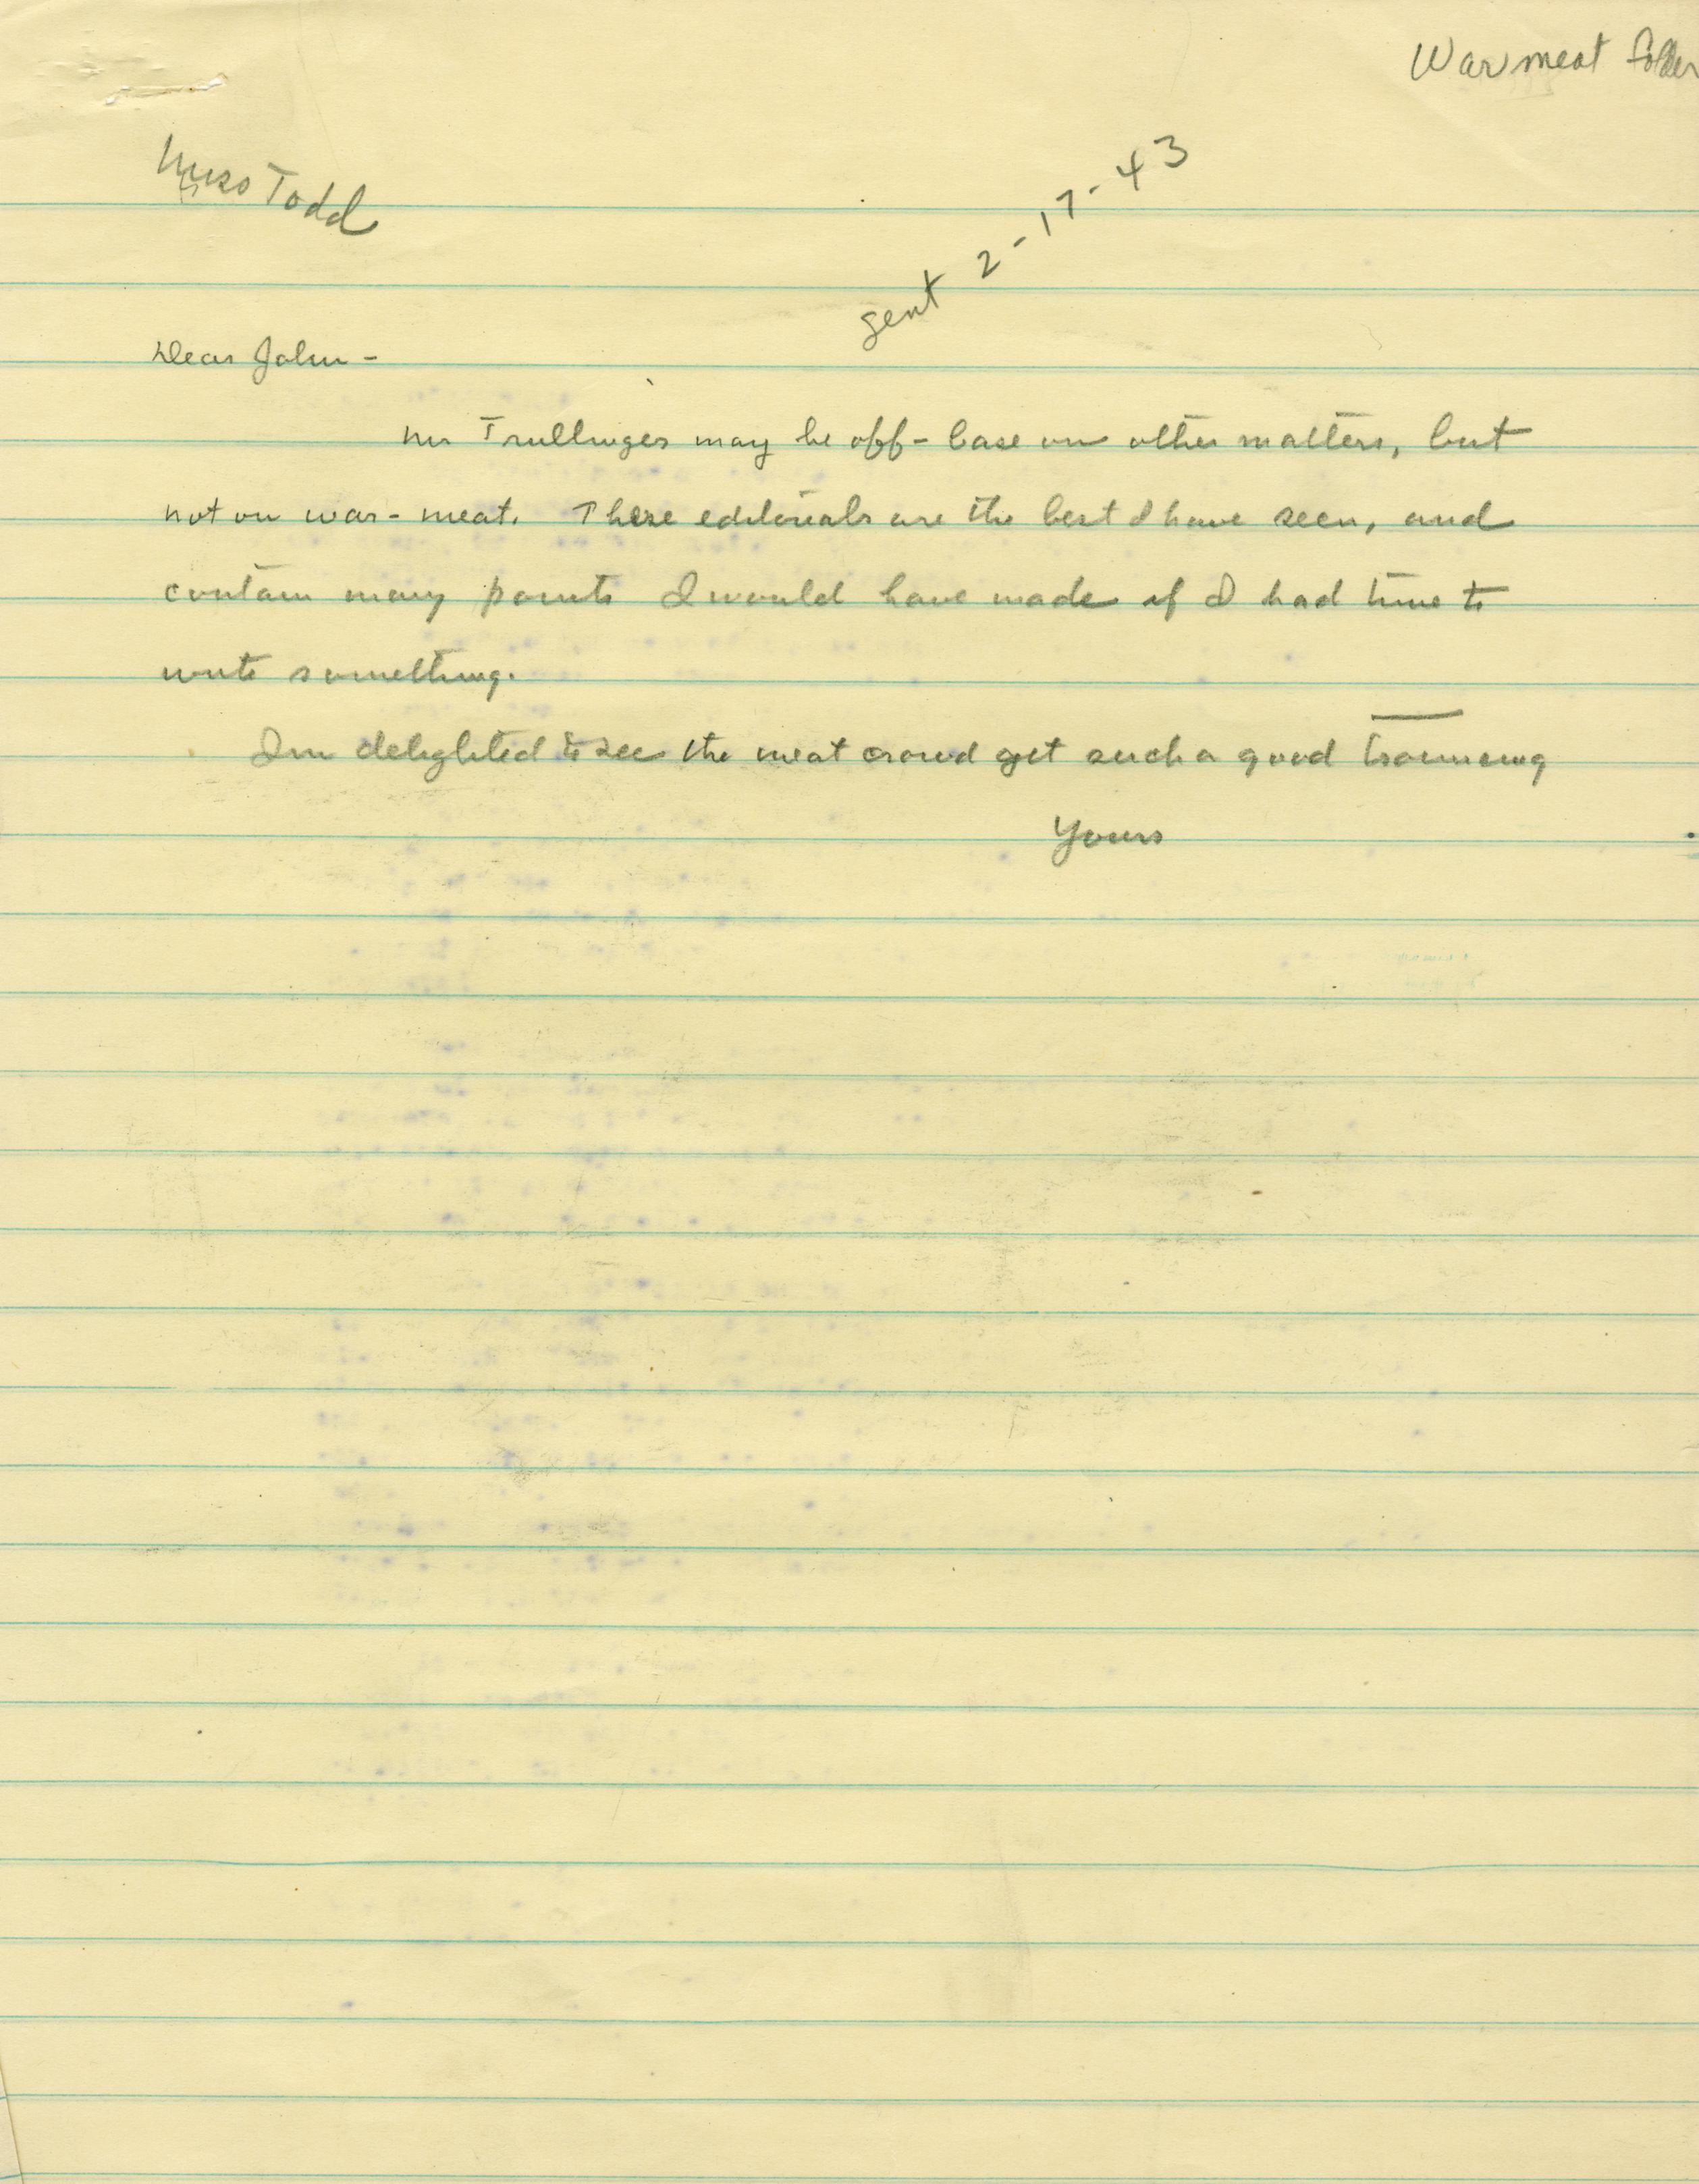 War meat folder
Miss Todd
sent 2-17-43
Dear John -
Mr Trullinger may be off-base on other matters, but
not on war-meat. These editorials are the best I have seen, and
contain many points I would have made if I had time to
write something.
I'm delighted to see the meat crowd get such a good trouncing
Yours